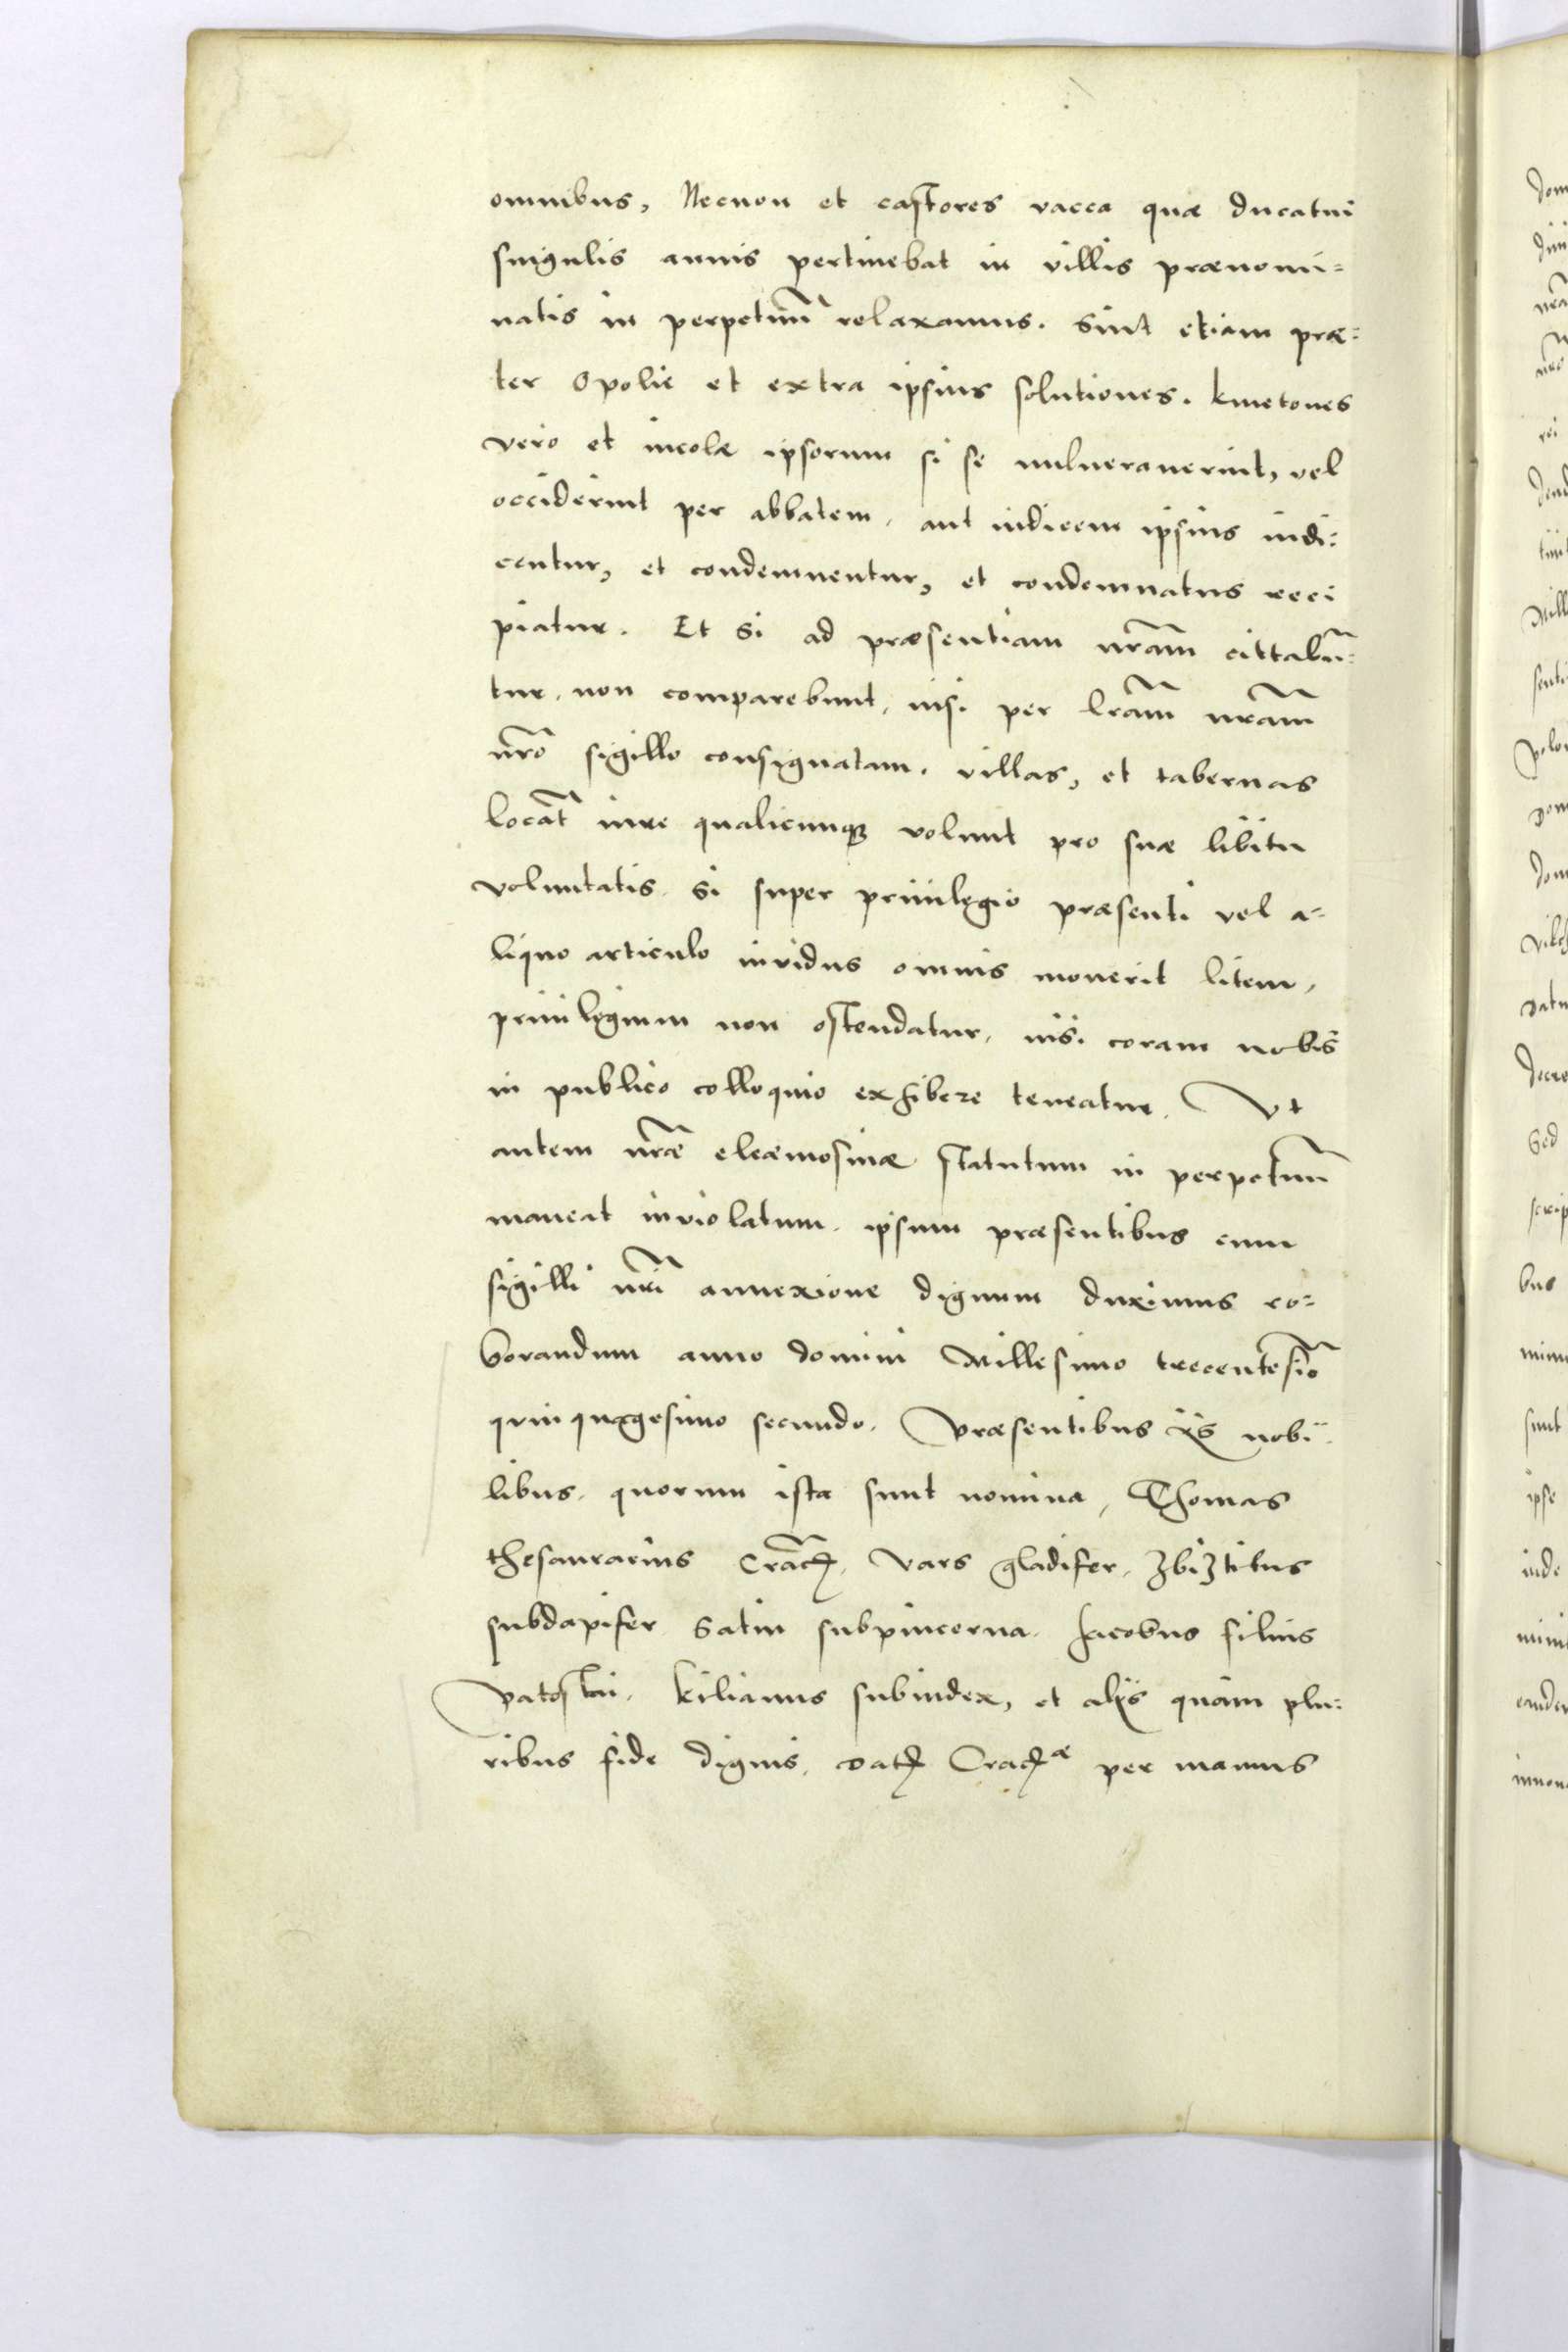 omnibus, Necnon et castores vacca quæ ducatui
singulis annis pertinebat in villis prænomi-
natis in perpetuũ relaxamus. Sint etiam præ-
ter Opolie et extra ipsius solutiones. kmetones
vero et incolæ ipsorum si se uulnerauerint, vel
occiderint per abbatem, aut iudicem ipsius iudi-
centur, et condemnentur, et condemnatus reci
piatur. Et si ad præsentiam nr̃am cittabũ-
tur, non comparebunt, nisi per lr̃am nr̃am
nr̃o sigillo consignatam. villas, et tabernas
locãt iure qualicunq3 volunt pro suæ libitu
voluntatis. Si super priuilegio præsenti vel a-
liquo articulo inuidus omnis mouerit litem,
priuilegium non ostendatur, nisi coram nobis
in publico colloquio exhibere teneatur. Vt
autem nr̃æ eleæmosinæ statutum in perpetuũ
maneat inuiolatum, ipsum præsentibus cum
sigilli nr̃i annexione dignum duximus ro-
borandum anno domini Millesimo trecentesĩo
quinquagesimo secundo. Præsentibus ijs nobi-
libus, quorum ista sunt nomina, Thomas
thesaurarius Crac̃, Vars gladifer, Zbiztitus
subdapifer Satin subpincerna. Jacobus filius
Patostai. kilianus subiudex, et alijs quàm plu-
ribus fide dignis, Dat Crac^æ per manus